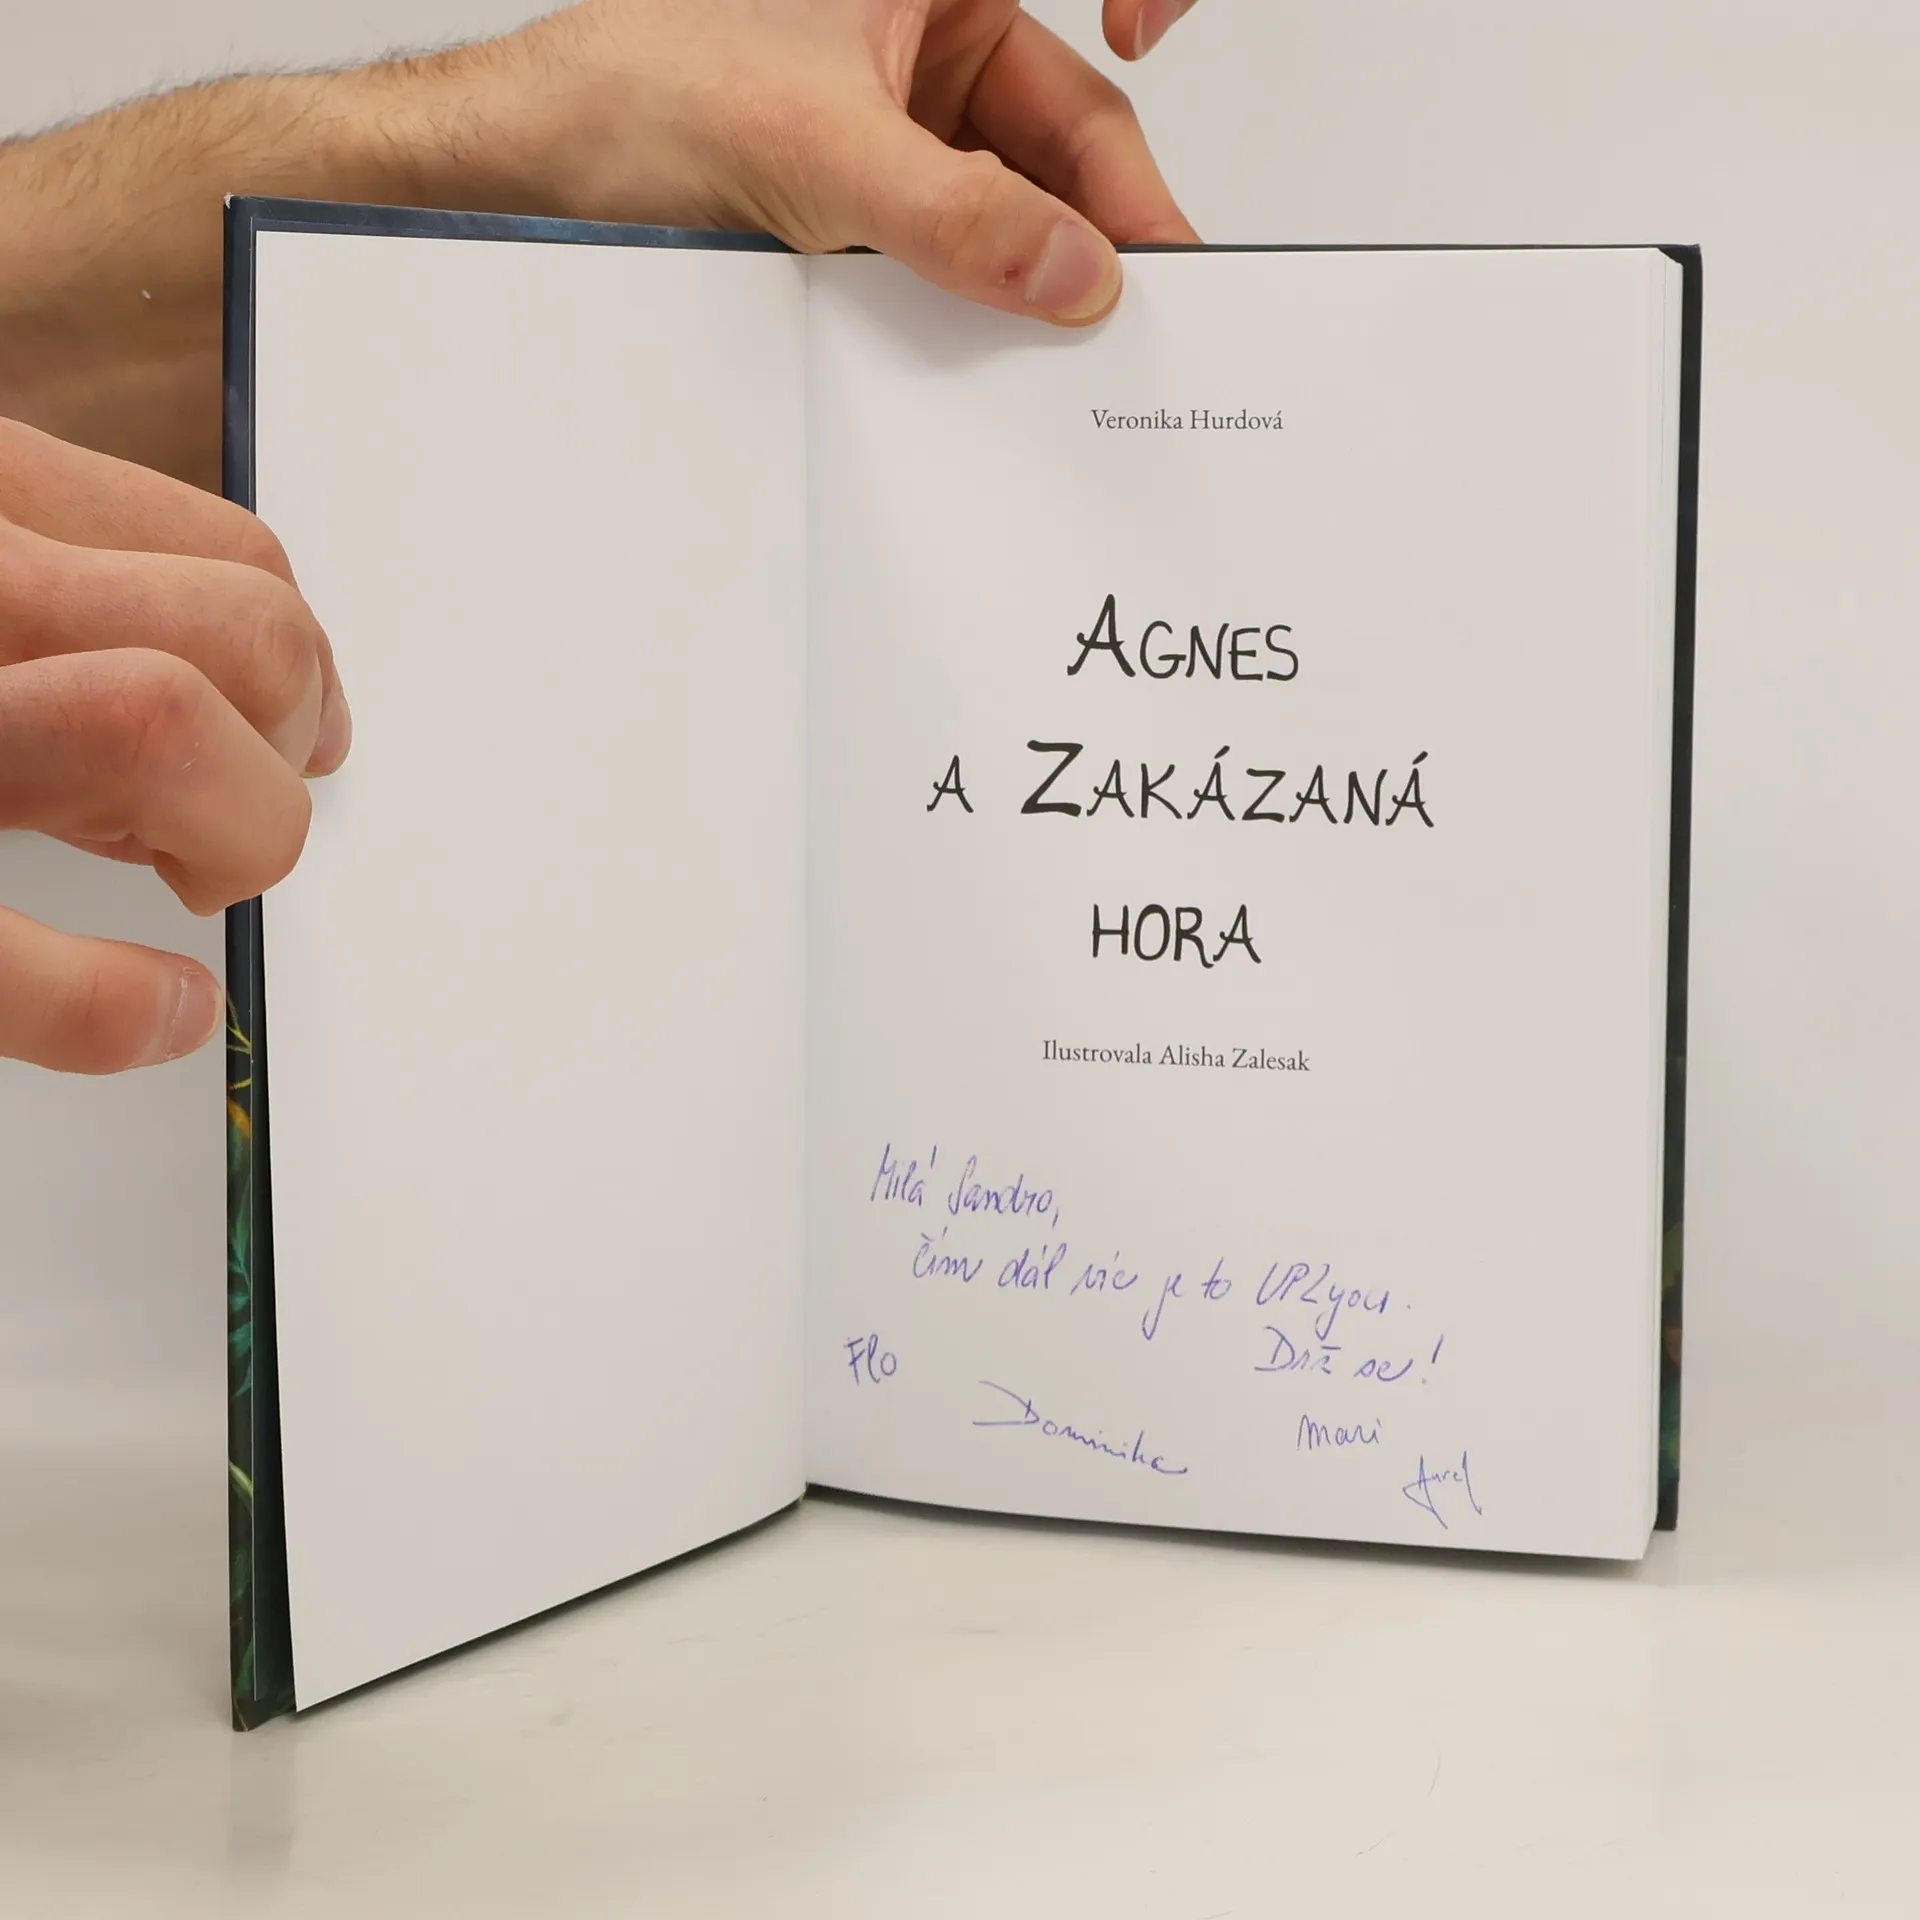 Veronika Hurdová
AGNES
A ZAKÁZANÁ
HORA
Ilustrovala Alisha Zalesak
Milá Sandro,
čím dál víc je to UP2you.
Drž se!
Flo
Dominika
Mari
Aurel